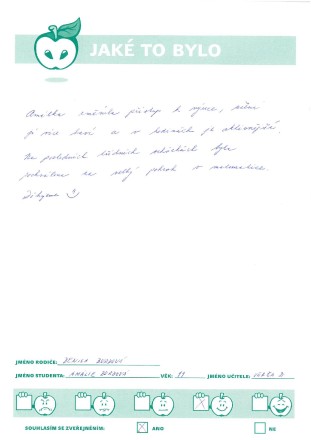 JAKÉ TO BYLO
Anička změnila přístup k výuce, učení
ji více baví a v hodinách je aktivnější.
Na posledních třídních schůzkách byla
pochválena za velký pokrok v matematice.
Děkujeme
JMÉNO RODIČE: DENISA
JMÉNO STUDENTA: VĚK: 11 JMÉNO UČITELE:
SOUHLASÍM SE ZVEŘEJNĚNÍM: X ANO NE